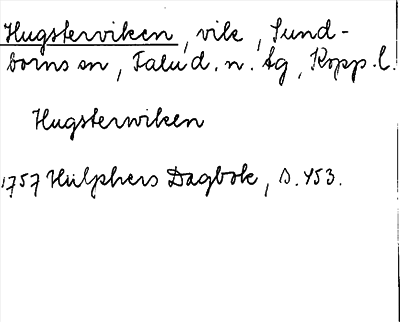 Hugsterviken, vik, Sund-
borns sn, Falu d. n. tg, Kopp. l.
Hugsterwiken
1757 Hülphers Dagbok, s. 453.